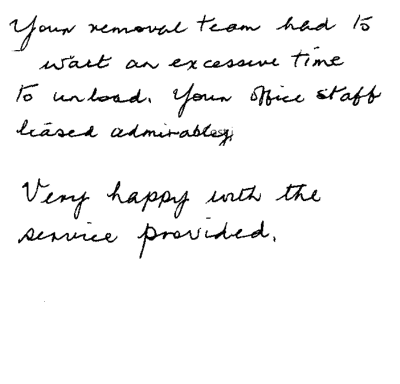 Your removal team had to
wait an excessive time
to unload. Your office staff
liased admirabley.
Very happy with the
service provided.